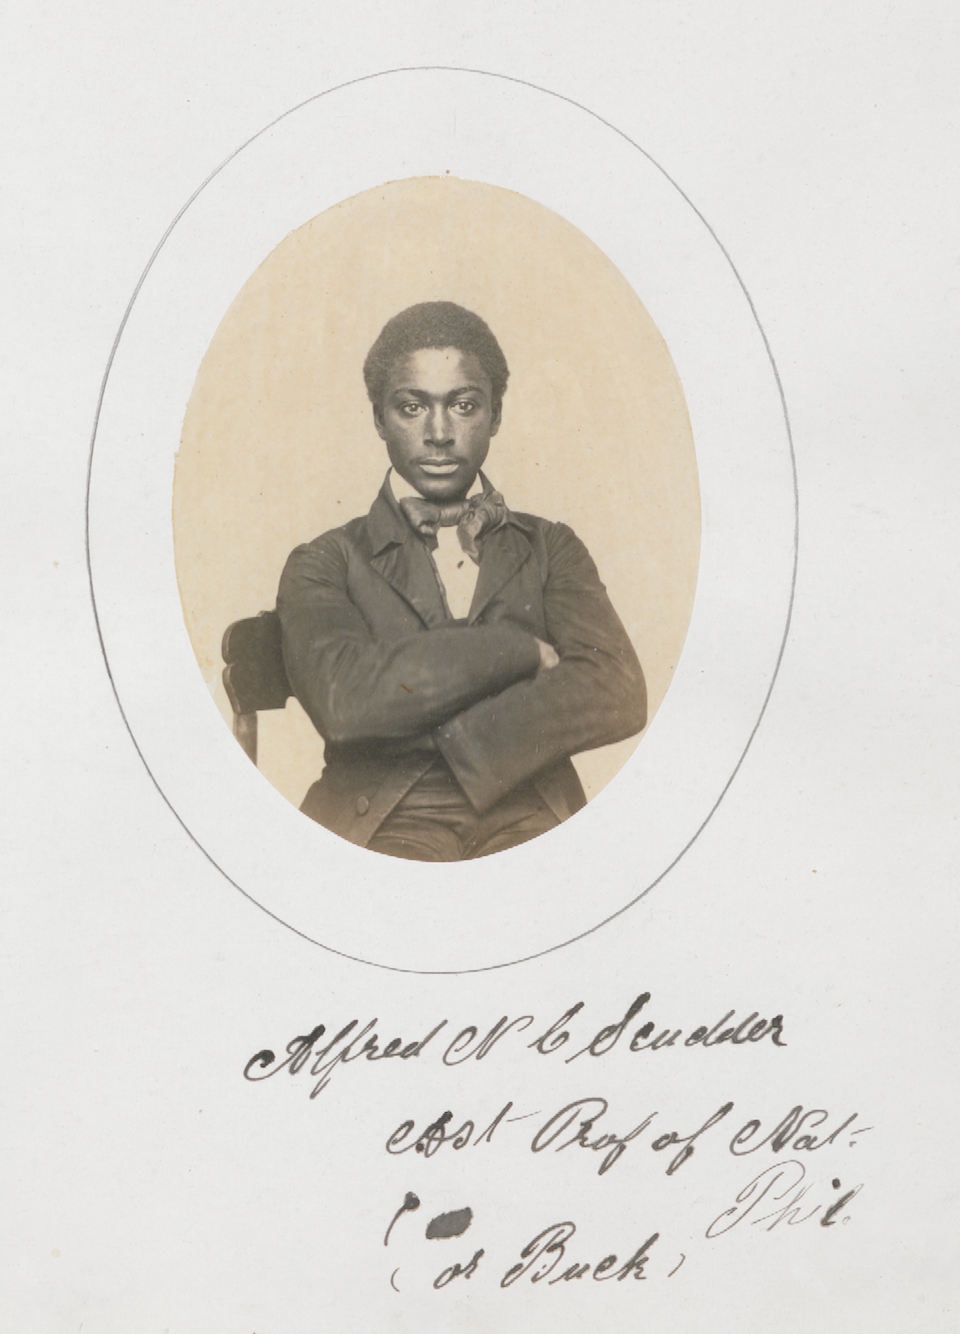 Alfred N C Scudder
Ast Prof of Nat-
Phil.
(
( or Buck )